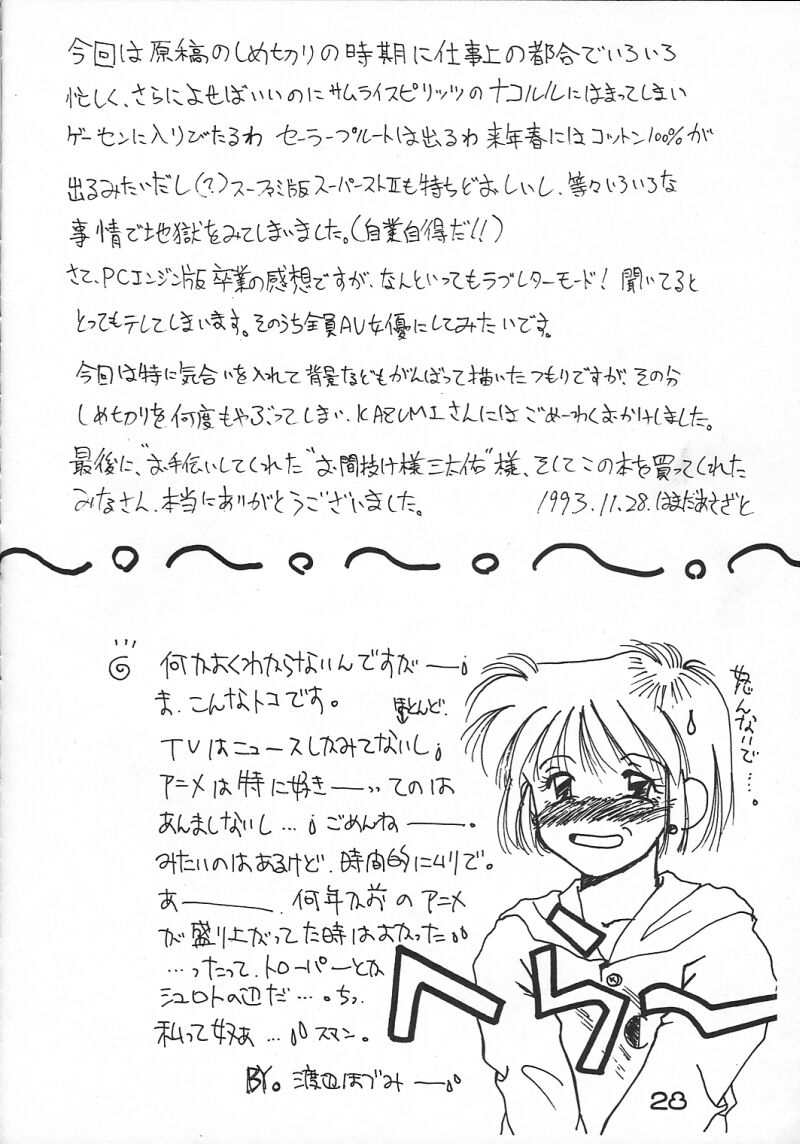 今回は原稿のしめ切りの時期に仕事上の都合でいろいろ
忙しく、さらによせばいいのにサムライスピリッツのナコルルにはまってしまい
ゲーセンに入りびたるわ セーラープルートは出るわ 来年春にはコットン100%が
出るみたいだし(?)スーファミ版スーパーストIIも待ちどおしいし、等々いろいろな
事情で地獄をみてしまいました。(自業自得だ!!)
さて、PCエンジン版卒業の感想ですが、なんといってもラブレターモード! 聞いてると
とってもテレてしまいます。そのうち全員AV女優にしてみたいです。
今回は特に気合いを入れて背景などもがんばって描いたつもりですが、その分
しめ切りを何度もやぶってしまい、KAZUMIさんにはごめーわくおかけしました。
最後に、"お手伝いしてくれた"お間抜け様三太佑"様、そしてこの本を買ってくれた
みなさん、本当にありがとうございました。 1993.11.28.はまだあさざと
何かよくわからないんですがー
ま、こんなトコです。
ほとんど
TVはニュースしかみてないし
アニメは特に好きーってのは
あんましないし… ごめんねー.
みたいのはあるけど、時間的にムリで。
あー、何年か前のアニメ
が盛り上がってた時はよかった
…ったって、トルーパーとか
シュラトの辺だ…ちっ
私って奴ぁ… スマン。
BY。渡辺ほづみー
怒んないで…。
へへへ
28